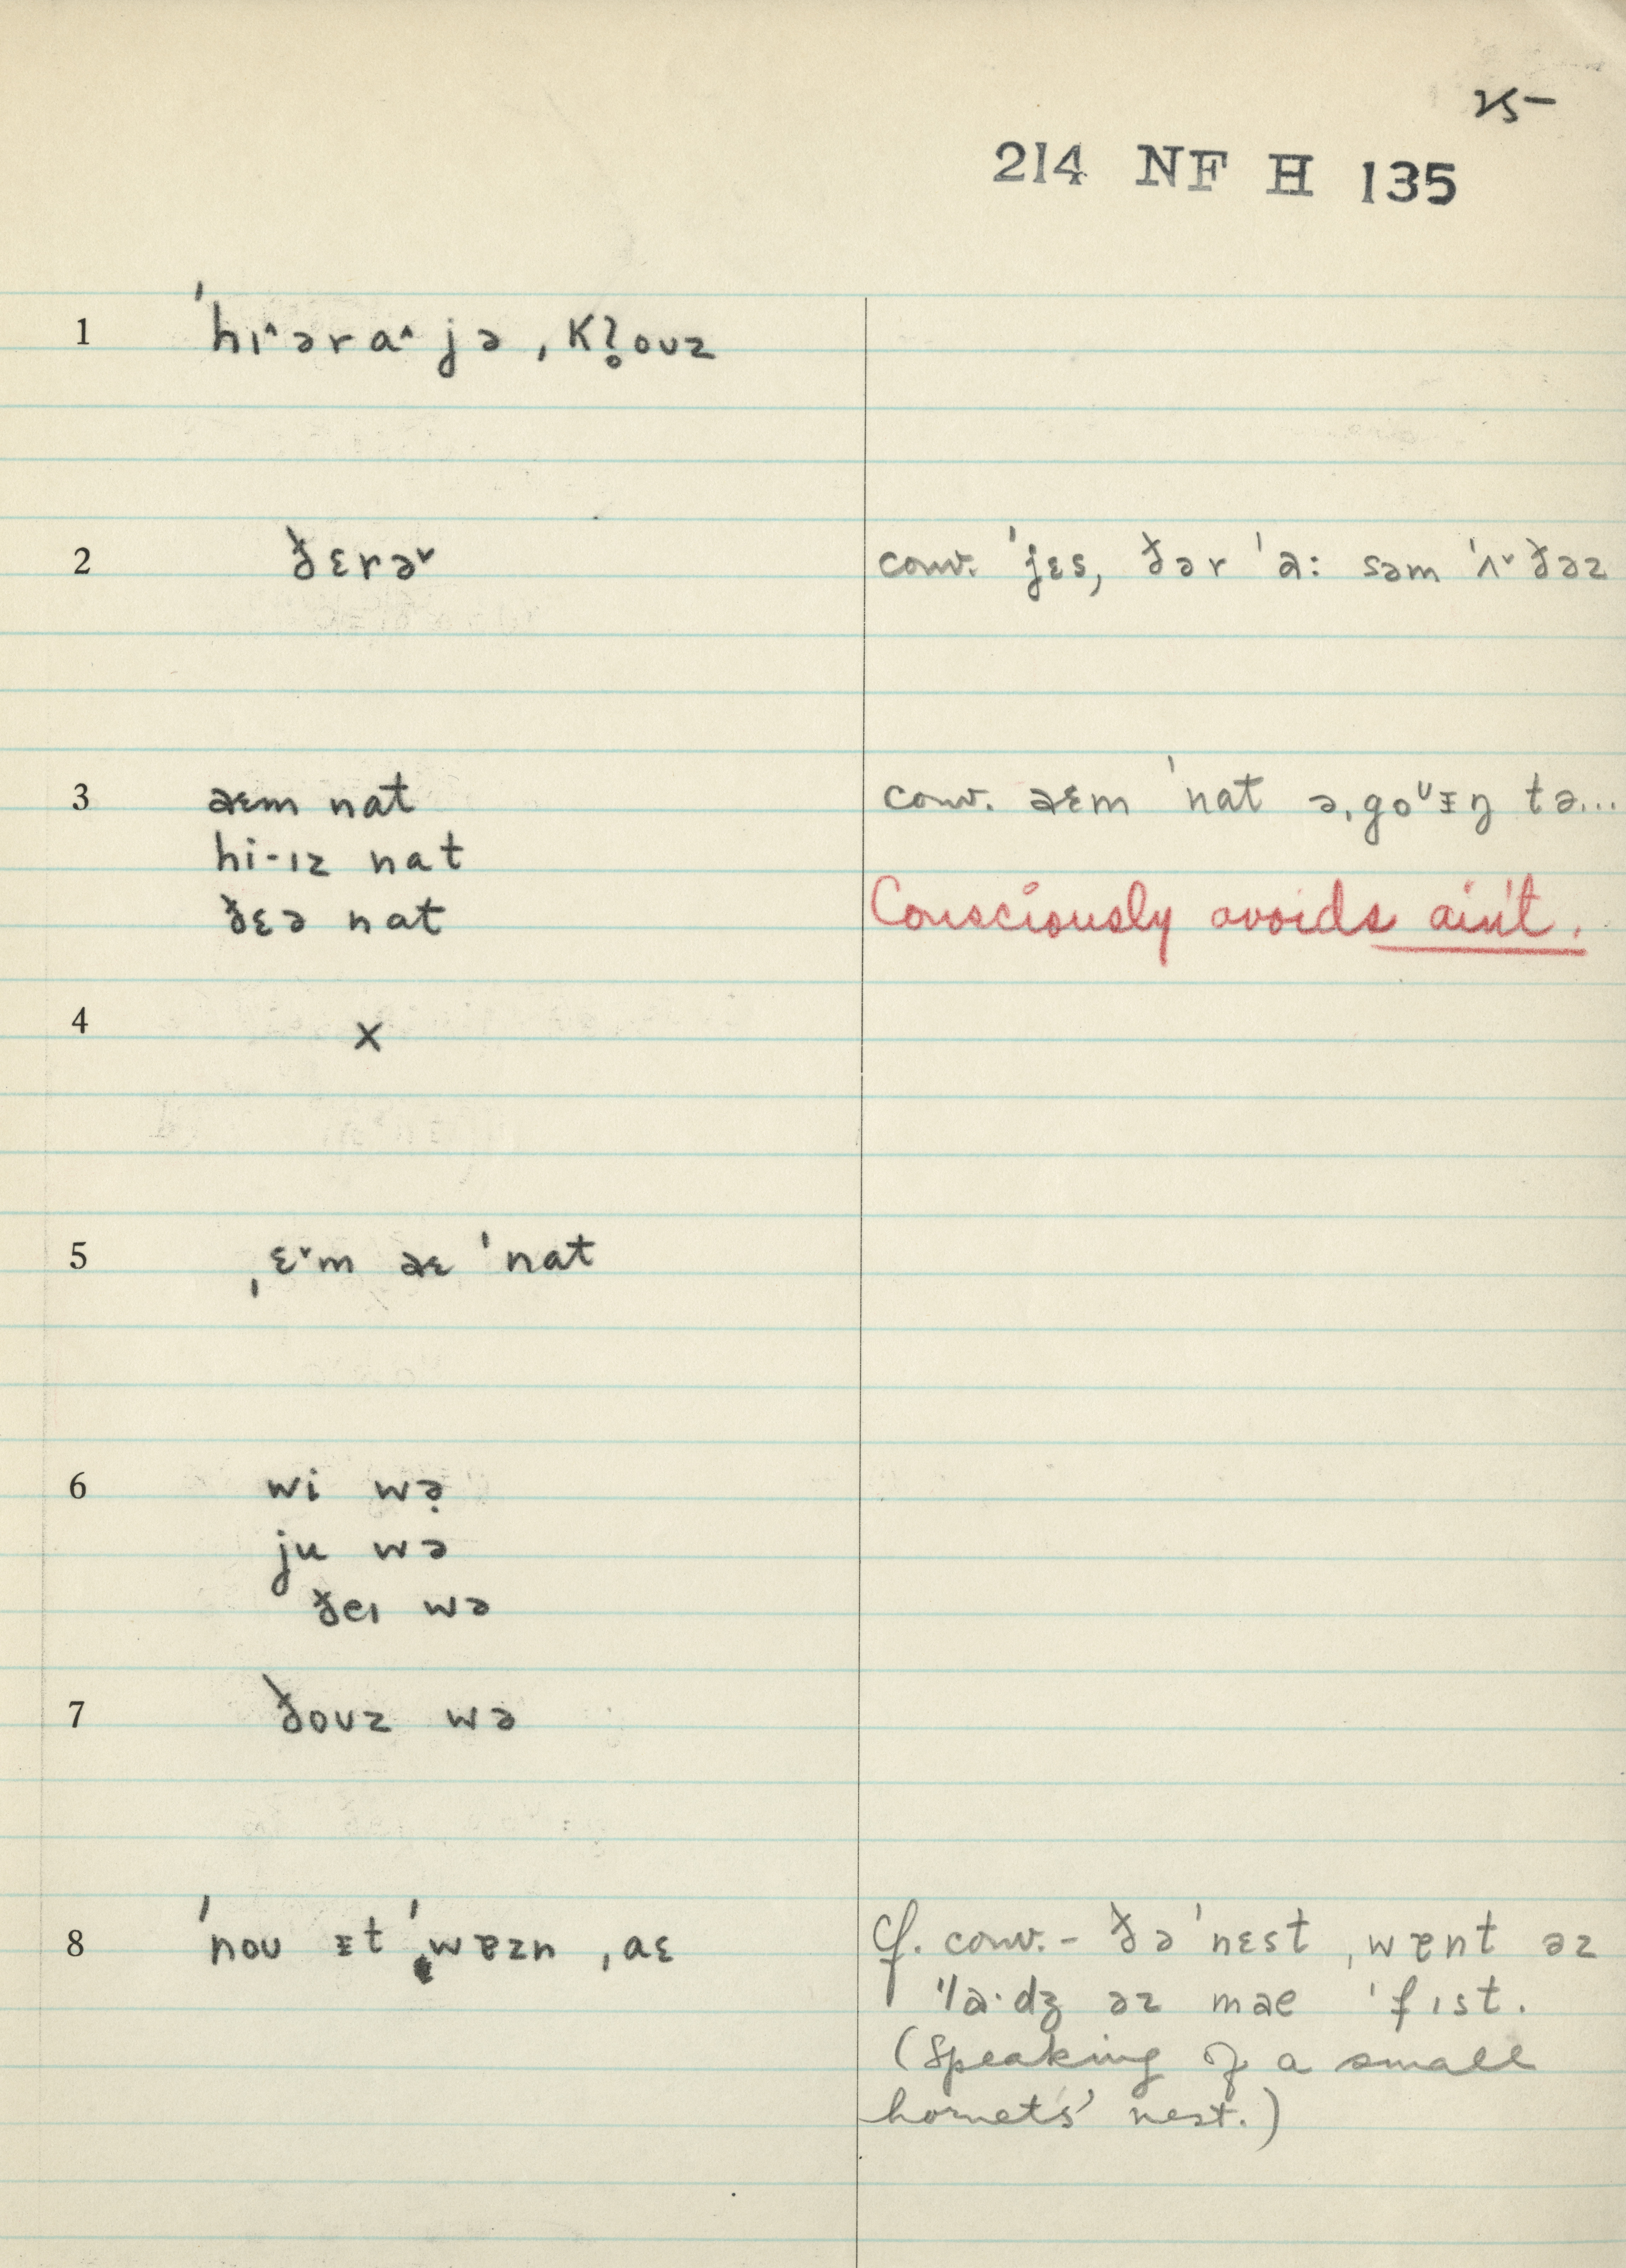 25-
214 NF H 135
1 ˈhɪ^ərɑ^ jə ˌkl̥oʊz
2 ðɛrə˅ conv. ˈjɛs, ðər ˈɑ: səm ˈʌ˅ðəz
3 aɛm nat conv. aɛm ˈnat əˌgoᶷɪŋ tə...
hi-ɪz nat
ðɛə nat Consciously avoids ain't.
4 X
5 ˌɛ˅m aɛ ˈnat
6 wi wə̣
ju wə
ðeɪ wə
7 ðoʊz wə
8 ˈnoʊ ɪt ˈwɐzn ˌaɛ cf. conv. - ðə ˈnɛst ˌwɐnt əz
ˈla·dʒ əz mae ˈfɪst.
(Speaking of a small
hornets' nest.)